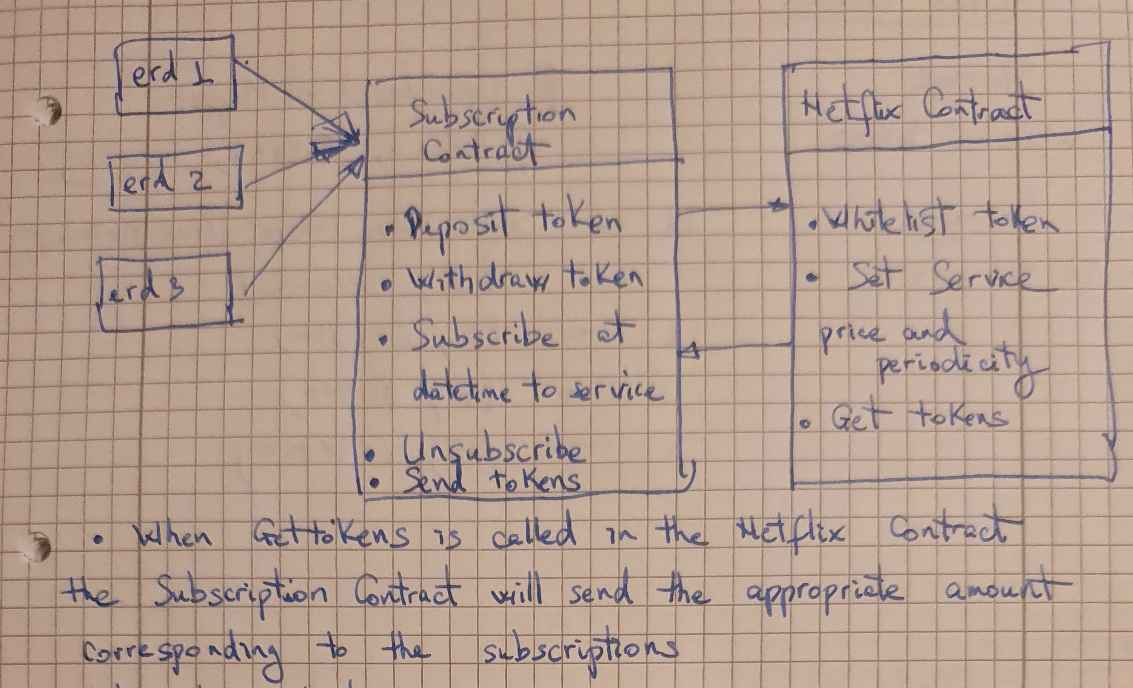 erd 1
erd 2
erd 3
Subscription
Contract
• Deposit token
• Withdraw token
• Subscribe at
datetime to service
• Unsubscribe
• Send tokens
Netflix Contract
• Whitelist token
• Set Service
price and
periodicity
• Get tokens
• When Get tokens is called in the Netflix Contract
the Subscription Contract will send the appropriate amount
corresponding to the subscriptions